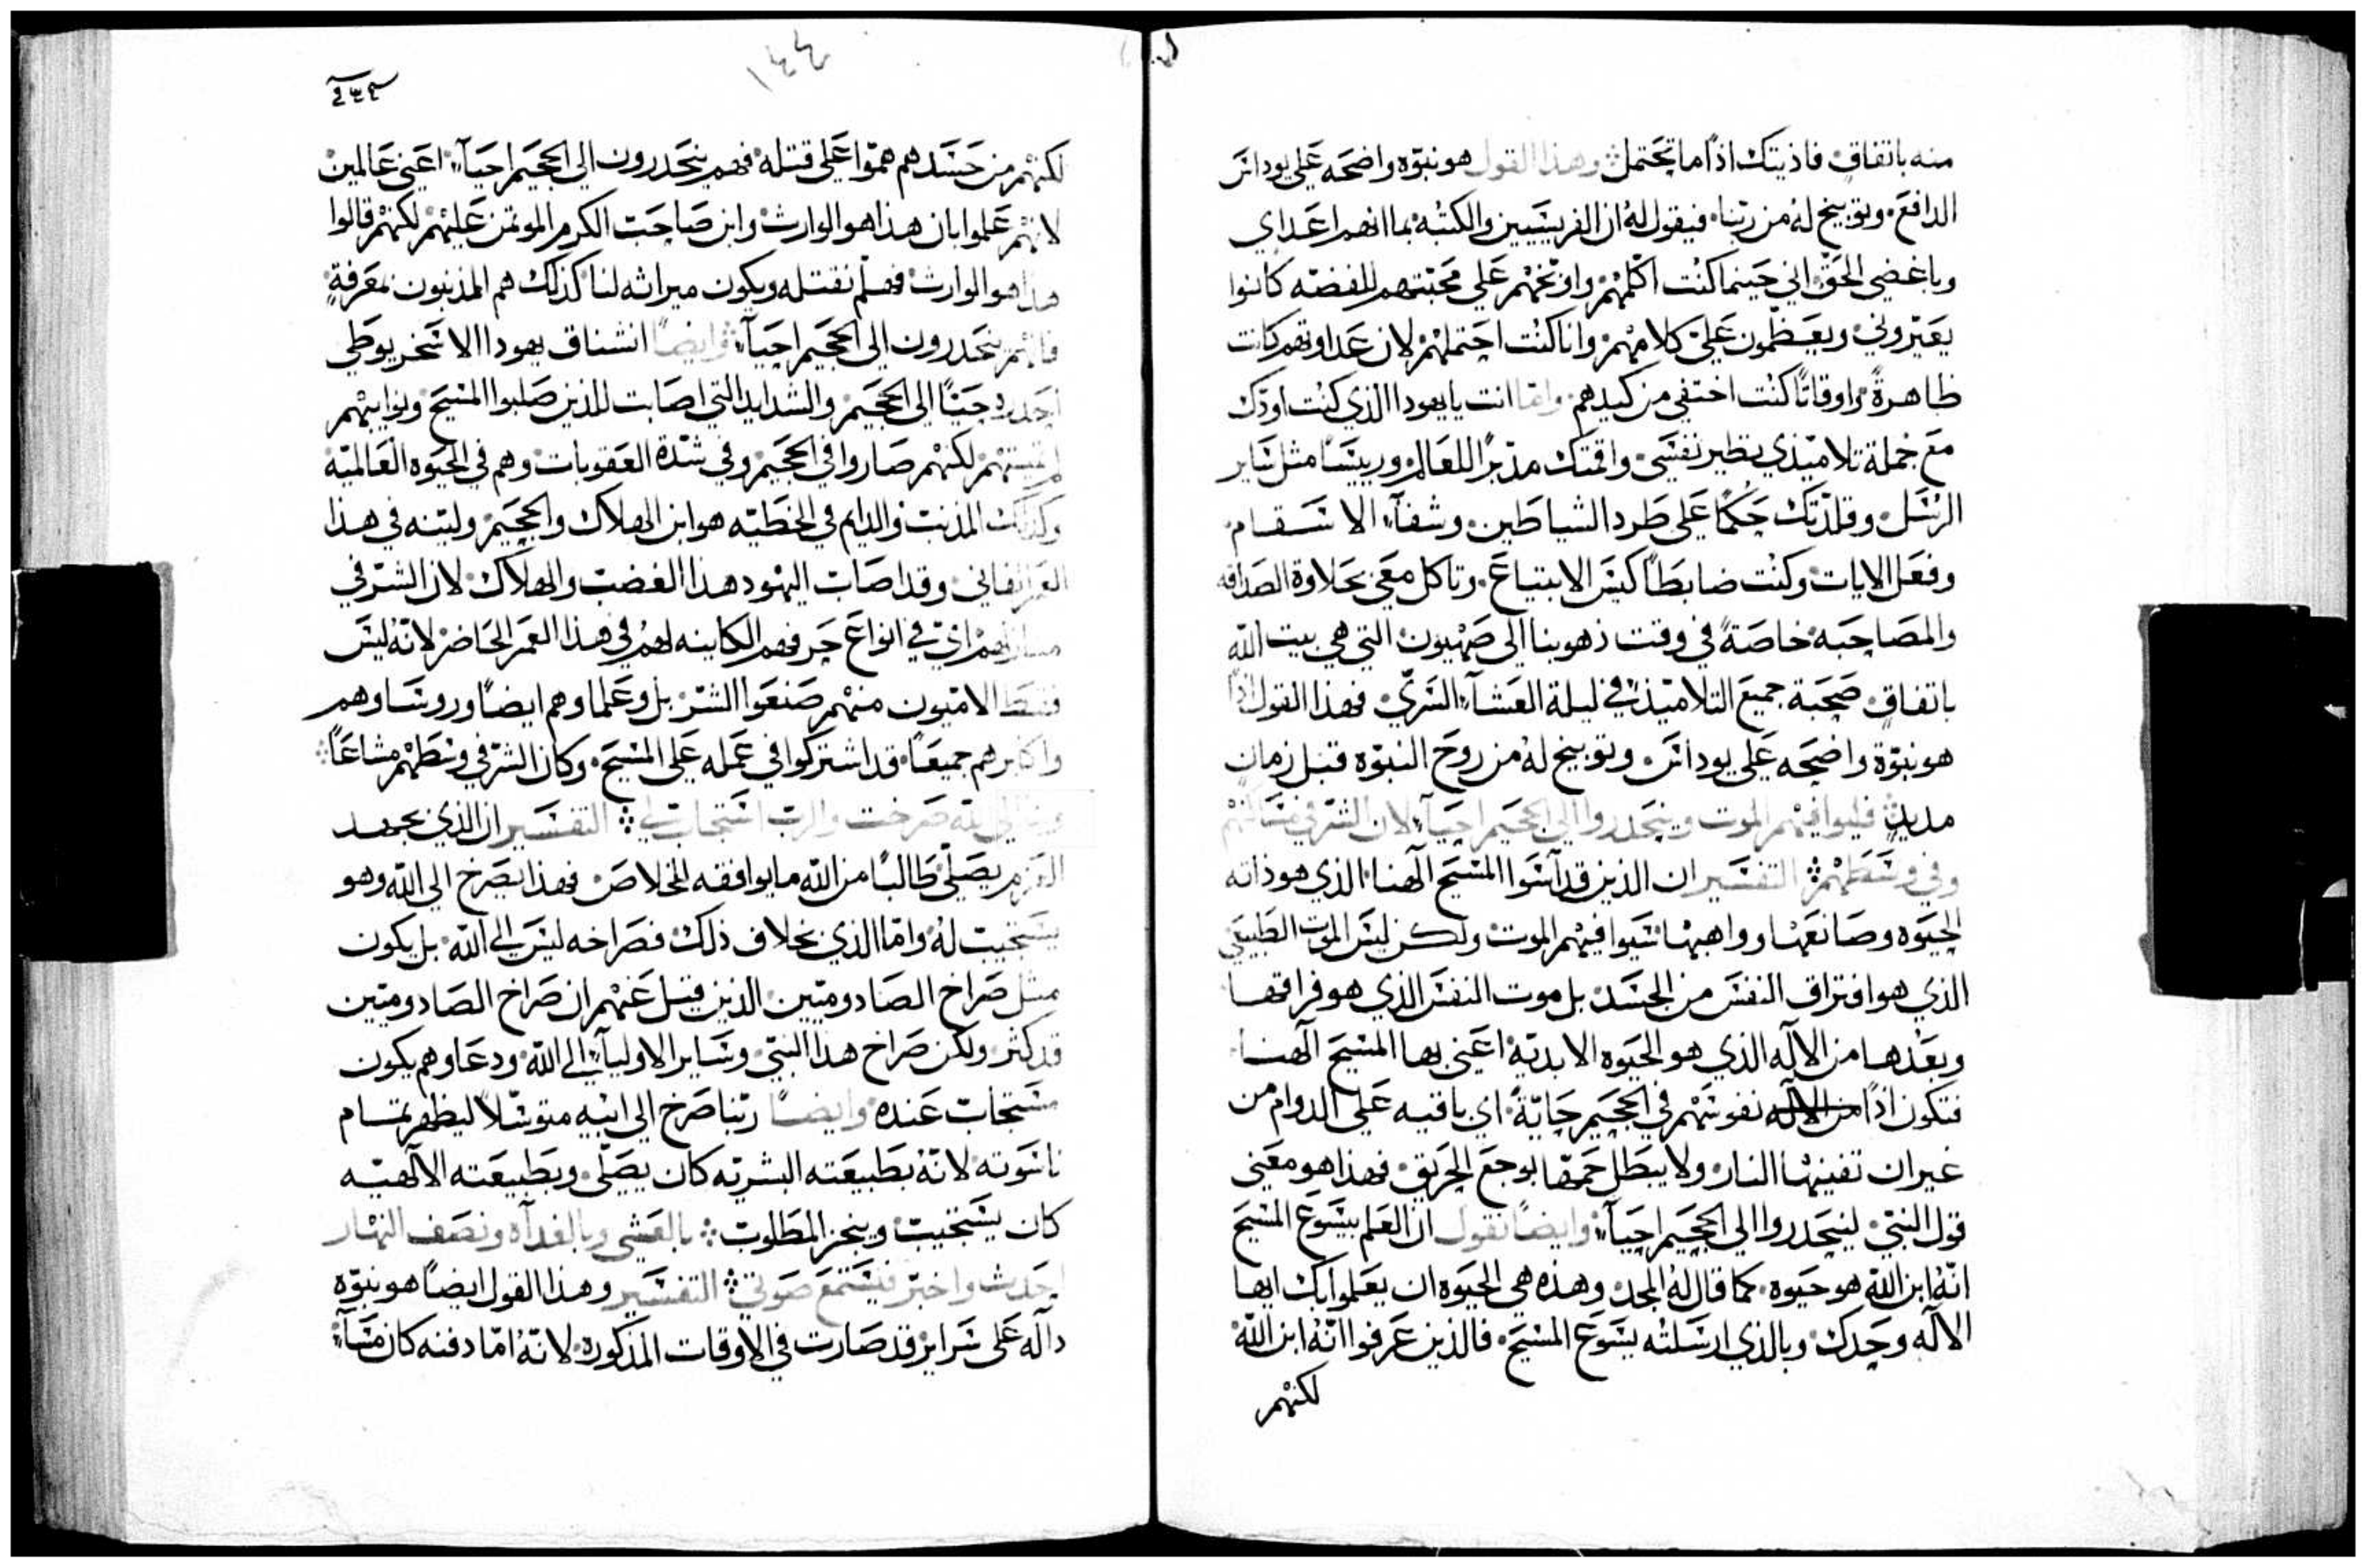 منه باتفاقٍ فاذيتك اذًا ما تحتمل وهذا القول هو نبوّه واضحه على يوداس
الدافع وتوبيخ لهُ من ربّنا فيقول لهُ ان الفريسيين والكتبه بما انهم اعداي
وباغضي الحق اني حينما كنت اكلّمهم واوبّخهم على محبّتهم للفضّه كانوا
يعيّروني ويعظّمون عليّ كلامهم وانا كنت احتملهم لان عداوتهم كانت
ظاهرةً واوقاتًا كنت اختفي من كيدهم وامّا انت يا يهودا الذي كنت اودّك
مع جملة تلاميذي نظير نفسي واقمتك مدبّرًا للعالم ورييسًا مثل ساير
الرسل وقلدتك حكمًا على طرد الشياطين وشفآء الاسقام
وفعل الايات وكنت ضابطًا كيس الابتياع وتاكل معي بحلاوة الصداقه
والمصاحبه خاصةً في وقت ذهوبنا الى صهيون التي هي بيت الله
باتفاقٍ صحبة جميع التلاميذ في ليلة العشآء السرّي فهذا القول اذًا
هو نبوّة واضحه على يوداس وتوبيخ لهُ من روح النبوّه قبل زمان
مديدٍ فليوافيهم الموت وينحدروا الى الجحيم احيآء لان الشرّ في مساكنهم
وفي وسطهم التفسير ان الذين قد آسَوا المسيح آلهنا الذي هو ذاته
الحيوه وصانعها وواهبها سيوافيهم الموت ولكن ليس الموت الطبيعي
الذي هو افتراق النفس من الجسد بل موت النفس الذي هو فراقها
وبعدها من الاله الذي هو الحيوه الابديّه اعني بها المسيح آلهنا
فتكون اذًا من الاله نفوسهم في الجحيم حايّةً اي باقيه على الدوام من
غير ان تفنيها النار ولا يبطل حمقها لوجع الحريق فهذا هو معنى
قول النبيّ لينحدروا الى الجحيم احيآء وايضًا نقول ان العلم بيسوع المسيح
انّهُ ابن الله هو حيوه كما قال لهُ المجد وهذه هي الحيوه ان يعلموا بك ايها
الاله وحدك وبالذي ارسلته يسوع المسيح فالذين عرفوا انّهُ ابن الله
لكنهم
١٤٤
لكنهم من حسدهم همّوا على قتله فهم ينحدرون الى الجحيم احيآء اعني عالمين
لانهم علموا بان هذا هو الوارث وابن صاحب الكرم الموتمن عليهم لكنهم قالوا
هذا هو الوارث فهلم نقتله ويكون ميراثه لنا كذلك هم المذنبون بمعرفةٍ
فانهم ينحدرون الى الجحيم احيآء وايضًا انشناق يهودا الاسخريوطي
احدره حيًّا الى الجحيم والشدايد التي اصابت للذين صلبوا المسيح
لكنهم صاروا في الجحيم وفي شدّة العقوبات وهم في الحيوه العالميّه
وكذلك المذنب والدايم في الخطيّه هو ابن الهلاك والجحيم وليته في هذا
العمر الفاني وقد اصاب اليهود هذا الغضب والهلاك لان الشرّ في
مساكنهم اي في انواع حرفهم الكاينه لهم في هذا العمر الحاضر لانّه ليس
فقط الاميّون منهم صنعوا الشرّ بل وعلماوهم ايضًا وروساوهم
واكابرهم جميعًا قد اشتركوا في عمله على المسيح وكان الشرّ في وسطهم مشاعًا
وانا الى الله صرخت والرب استجاب لي التفسير ان الذي بجهد
العزم يصلّي طالبًا من الله ما يوافقه للخلاص فهذا يصرخ الى الله وهو
يستجيب لهُ وامّا الذي بخلاف ذلك فصراخه ليس الى الله بل يكون
مثل صراخ الصادوميّين الذين قيل عنهم ان صراخ الصادوميّين
قد كثر ولكن صراخ هذا النبيّ وساير الاوليآء الى الله ودعاوهم يكون
مستجاب عنده وايضًا ربّنا صرخ الى ابيه متوسّلًا ليظهر تمام
ناسوته لانّهُ بطبيعته البشريّه كان يصلّي وبطبيعته الالهيّه
كان يستجيب وينجز المطلوب بالعشي وبالغداه ونصف النهار
احدث واخبّر فيستمع صوتي التفسير وهذا القول ايضًا هو نبوّه
دالّه على سراير قد صارت في الاوقات المذكوره لانّهُ امّا دفنه كان مسآء